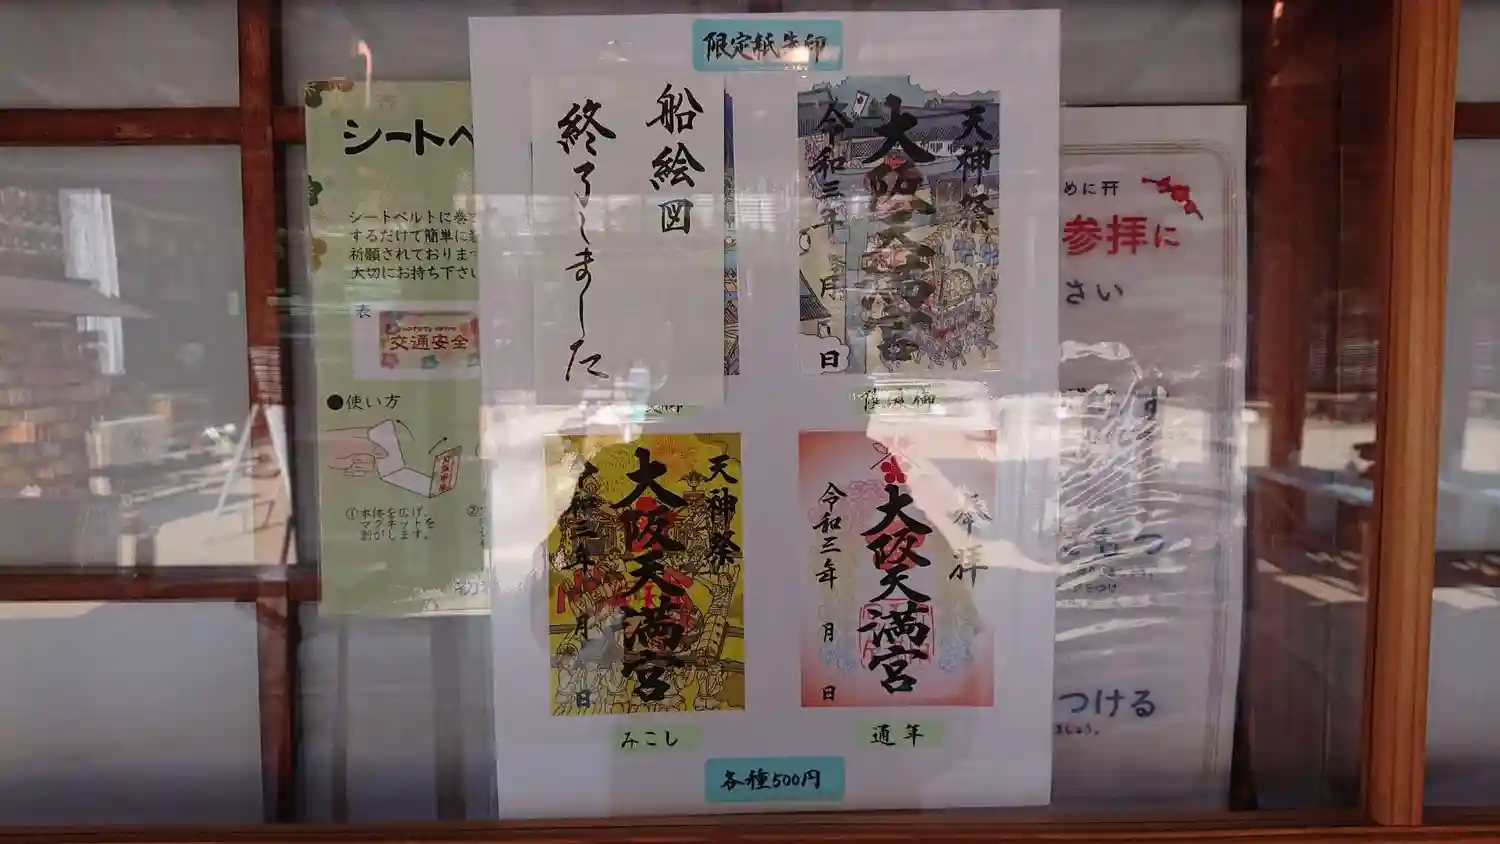 限定紙朱印
船絵図
終了しました
天神祭
大阪天満宮
令和三年
月
日
天神祭
大阪天満宮
令和三年
月
日
みこし
奉拝
大阪天満宮
令和三年
月
日
通年
各種500円
シートベ
シートベルトに巻
するだけで簡単に
祈願されておりま
大切にお持ち下さい
表
交通安全
●使い方
①本体を広げ、
マグネットを
剥がします。
②
めに
参拝に
さい
つける
ましょう。